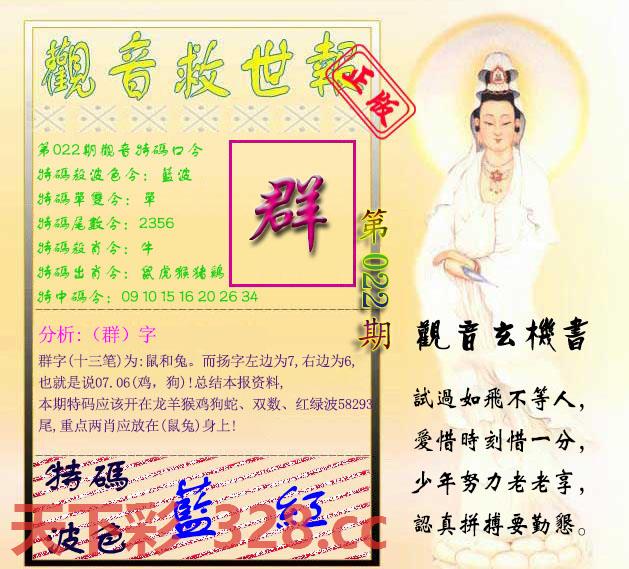 觀音救世報
正版
第022期觀音特碼口令
特碼殺波色令：藍波
特碼單雙令：單
特碼尾數令：2356
特碼殺肖令：牛
特碼出肖令：鼠虎猴猪鷄
特中碼令：09 10 15 16 20 26 34
群
第022期
分析:（群）字
群字(十三笔)为:鼠和兔。而扬字左边为7,右边为6,
也就是说07.06(鸡，狗)!总结本报资料,
本期特码应该开在龙羊猴鸡狗蛇、双数、红绿波58293
尾,重点两肖应放在(鼠兔)身上!
特碼
波色
藍 紅
天下彩 1328.cc
觀音玄機書
試過如飛不等人，
愛惜時刻惜一分，
少年努力老老享，
認真拼搏要勤懇。